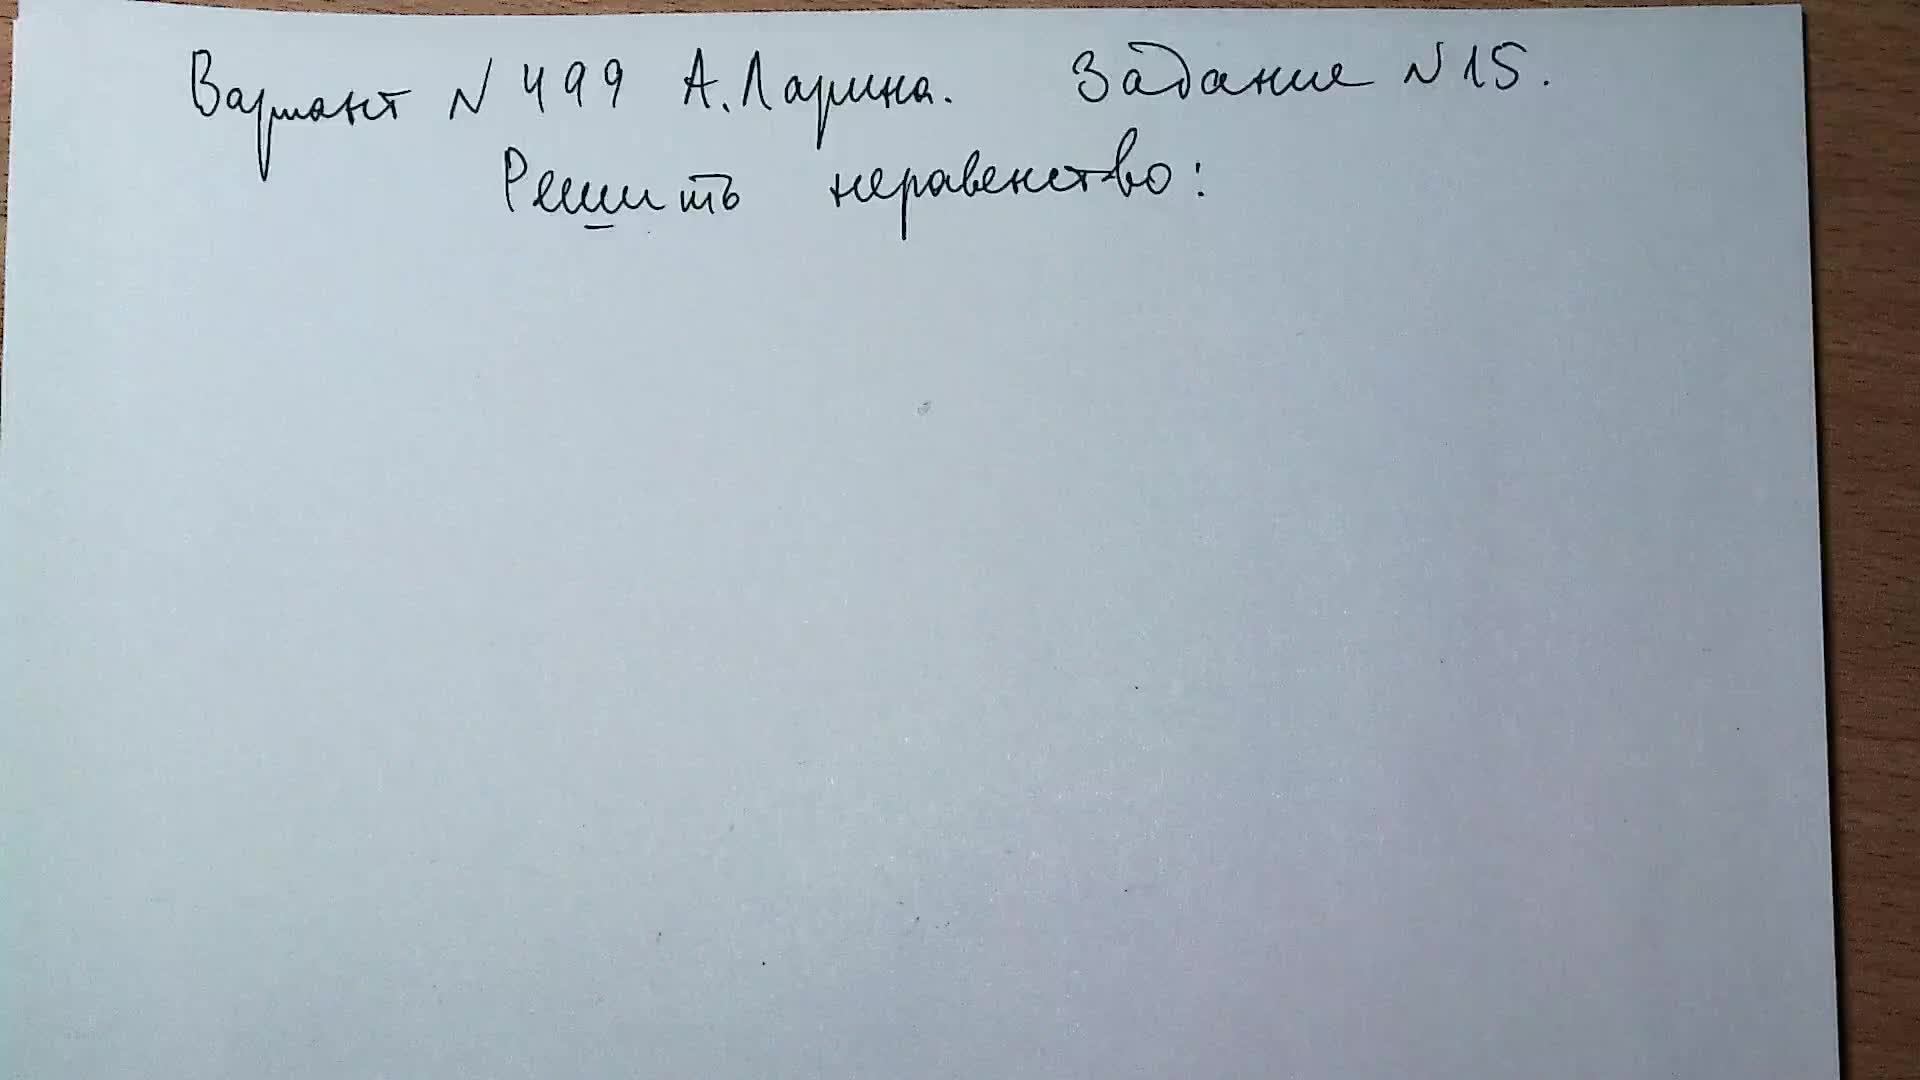 Вариант N 499 А. Ларина. Задание N 15.
Решить неравенство: